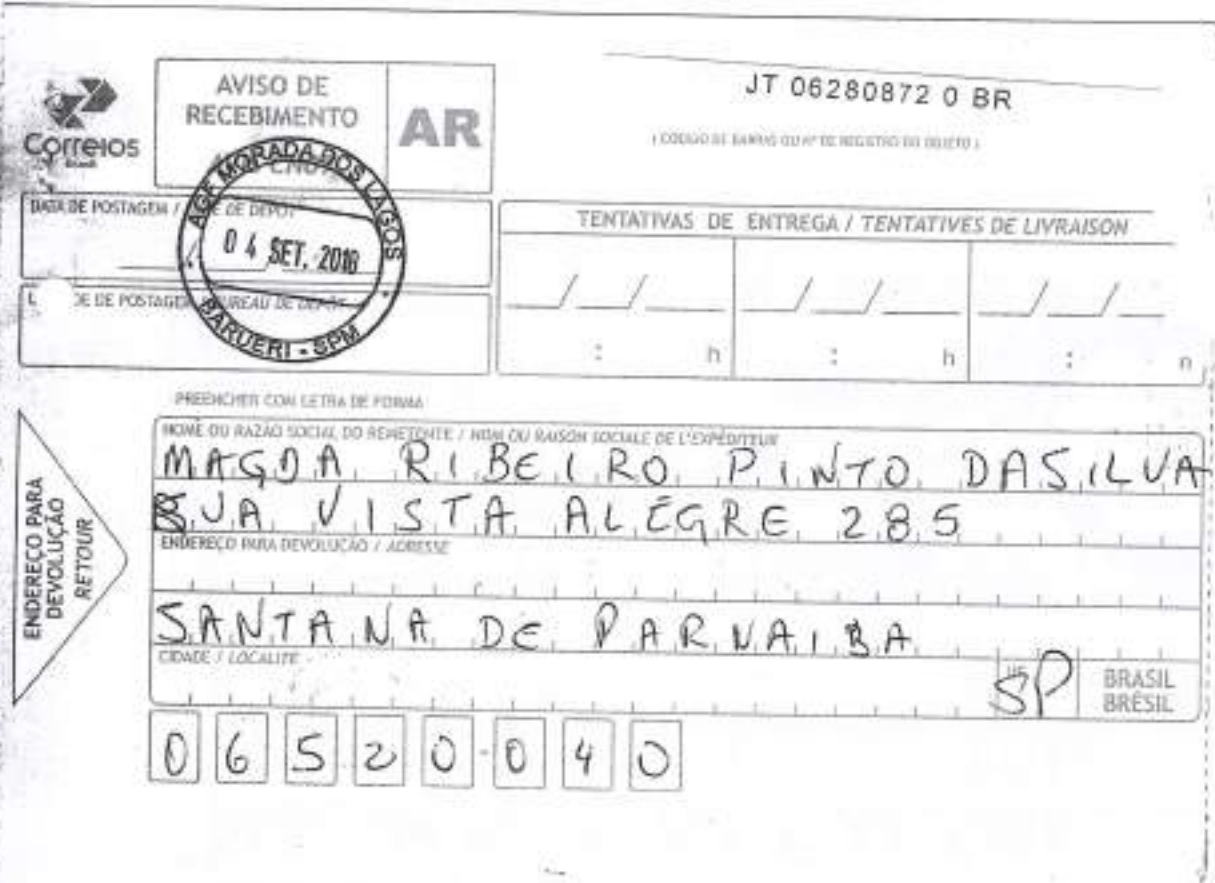 Correios
Brasil
AVISO DE
RECEBIMENTO
AR
JT 06280872 0 BR
( CÓDIGO DE BARRAS OU Nº DE REGISTRO DO OBJETO )
AGF MORADA DOS LAGOS
04 SET. 2018
BARUERI - SPM
DATA DE POSTAGEM / DE DEPÔT
DE DE POSTAGEM BUREAU DE DEPÔT
TENTATIVAS DE ENTREGA / TENTATIVES DE LIVRAISON
/ / / / / /
: h : h : h
PREENCHER COM LETRA DE FORMA
ENDEREÇO PARA
DEVOLUÇÃO
RETOUR
NOME OU RAZÃO SOCIAL DO REMETENTE / NOM OU RAISON SOCIALE DE L'EXPÉDITEUR
MAGDA RIBEIRO PINTO DASILVA
RUA VISTA ALEGRE 285
ENDEREÇO PARA DEVOLUÇÃO / ADRESSE
SANTANA DE PARNAIBA
CIDADE / LOCALITÉ
UF
SP
BRASIL
BRÉSIL
06520-040